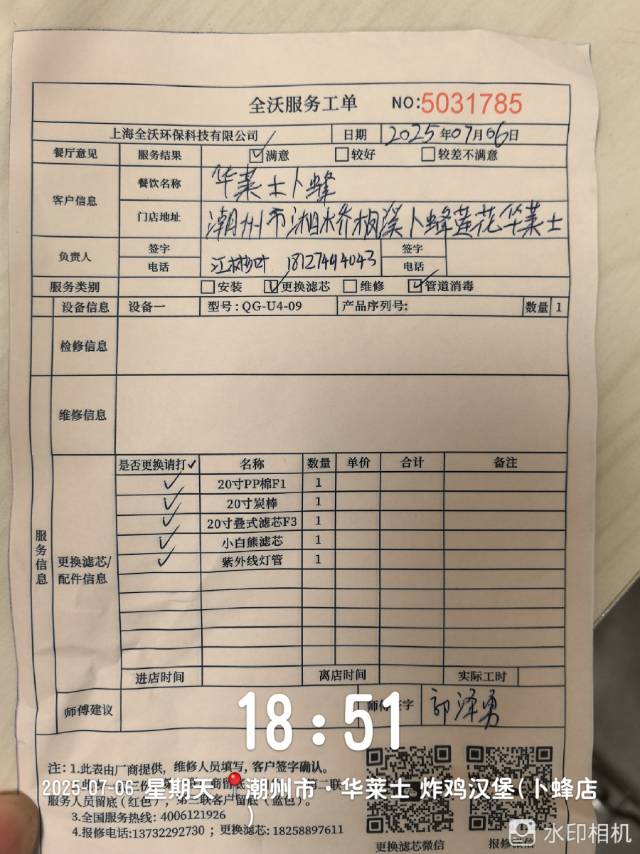 全沃服务工单 NO:5031785
上海全沃环保科技有限公司 日期 2025年07月06日
餐厅意见 服务结果 ☑满意 □较好 □较差不满意
客户信息 餐饮名称 华莱士卜蜂
门店地址 潮州市湘桥 卜蜂莲花华莱士
负责人 签字 签字
电话 江 18127494043 电话
服务类别 □安装 ☑更换滤芯 □维修 ☑管道消毒
设备信息 设备一 型号: QG-U4-09 产品序列号: 数量 1
检修信息
维修信息
服务信息
更换滤芯/配件信息
是否更换请打✓ 名称 数量 单价 合计 备注
✓ 20寸PP棉F1 1
✓ 20寸炭棒 1
✓ 20寸叠式滤芯F3 1
✓ 小白熊滤芯 1
✓ 紫外线灯管 1
进店时间 离店时间 实际工时
师傅建议 师傅签字 郭泽勇
18:51
注: 1.此表由厂商提供, 维修人员填写, 客户签字确认。
2025-07-06 星期天 潮州市·华莱士 炸鸡汉堡(卜蜂店)
服务人员留底(红色), 第三联客户留底(蓝色)。
3.全国服务热线: 4006121926
4.报修电话:13732292730 ; 更换滤芯: 18258897611
更换滤芯微信 报修微信
水印相机